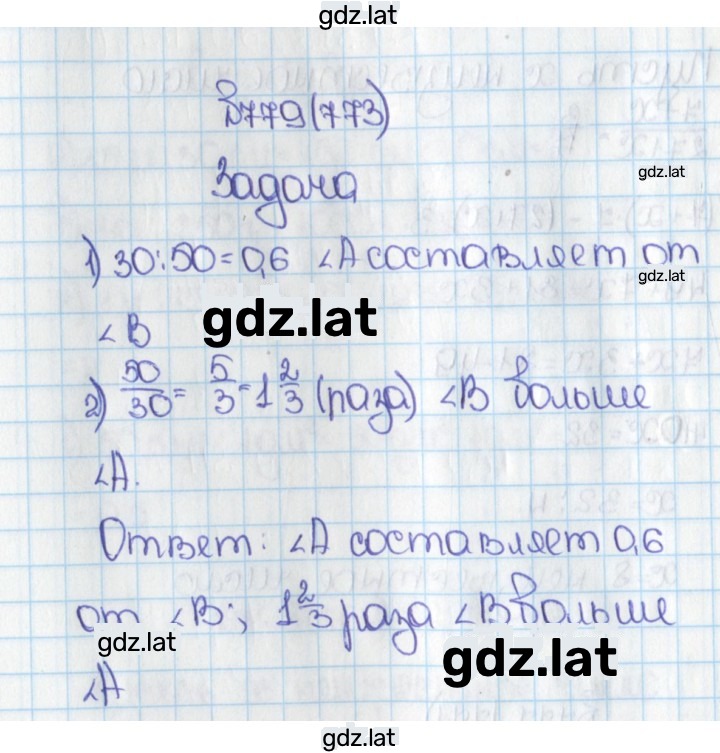 gdz.lat
№779(773)
Задача
gdz.lat
1) 30:50=0,6 ∠A составляет от
gdz.lat
∠B
gdz.lat
2) 50/30 = 5/3 = 1 2/3 (раза) ∠B больше
∠A.
Ответ: ∠A составляет 0,6
от ∠B; 1 2/3 раза ∠B больше
gdz.lat
gdz.lat
∠A
gdz.lat